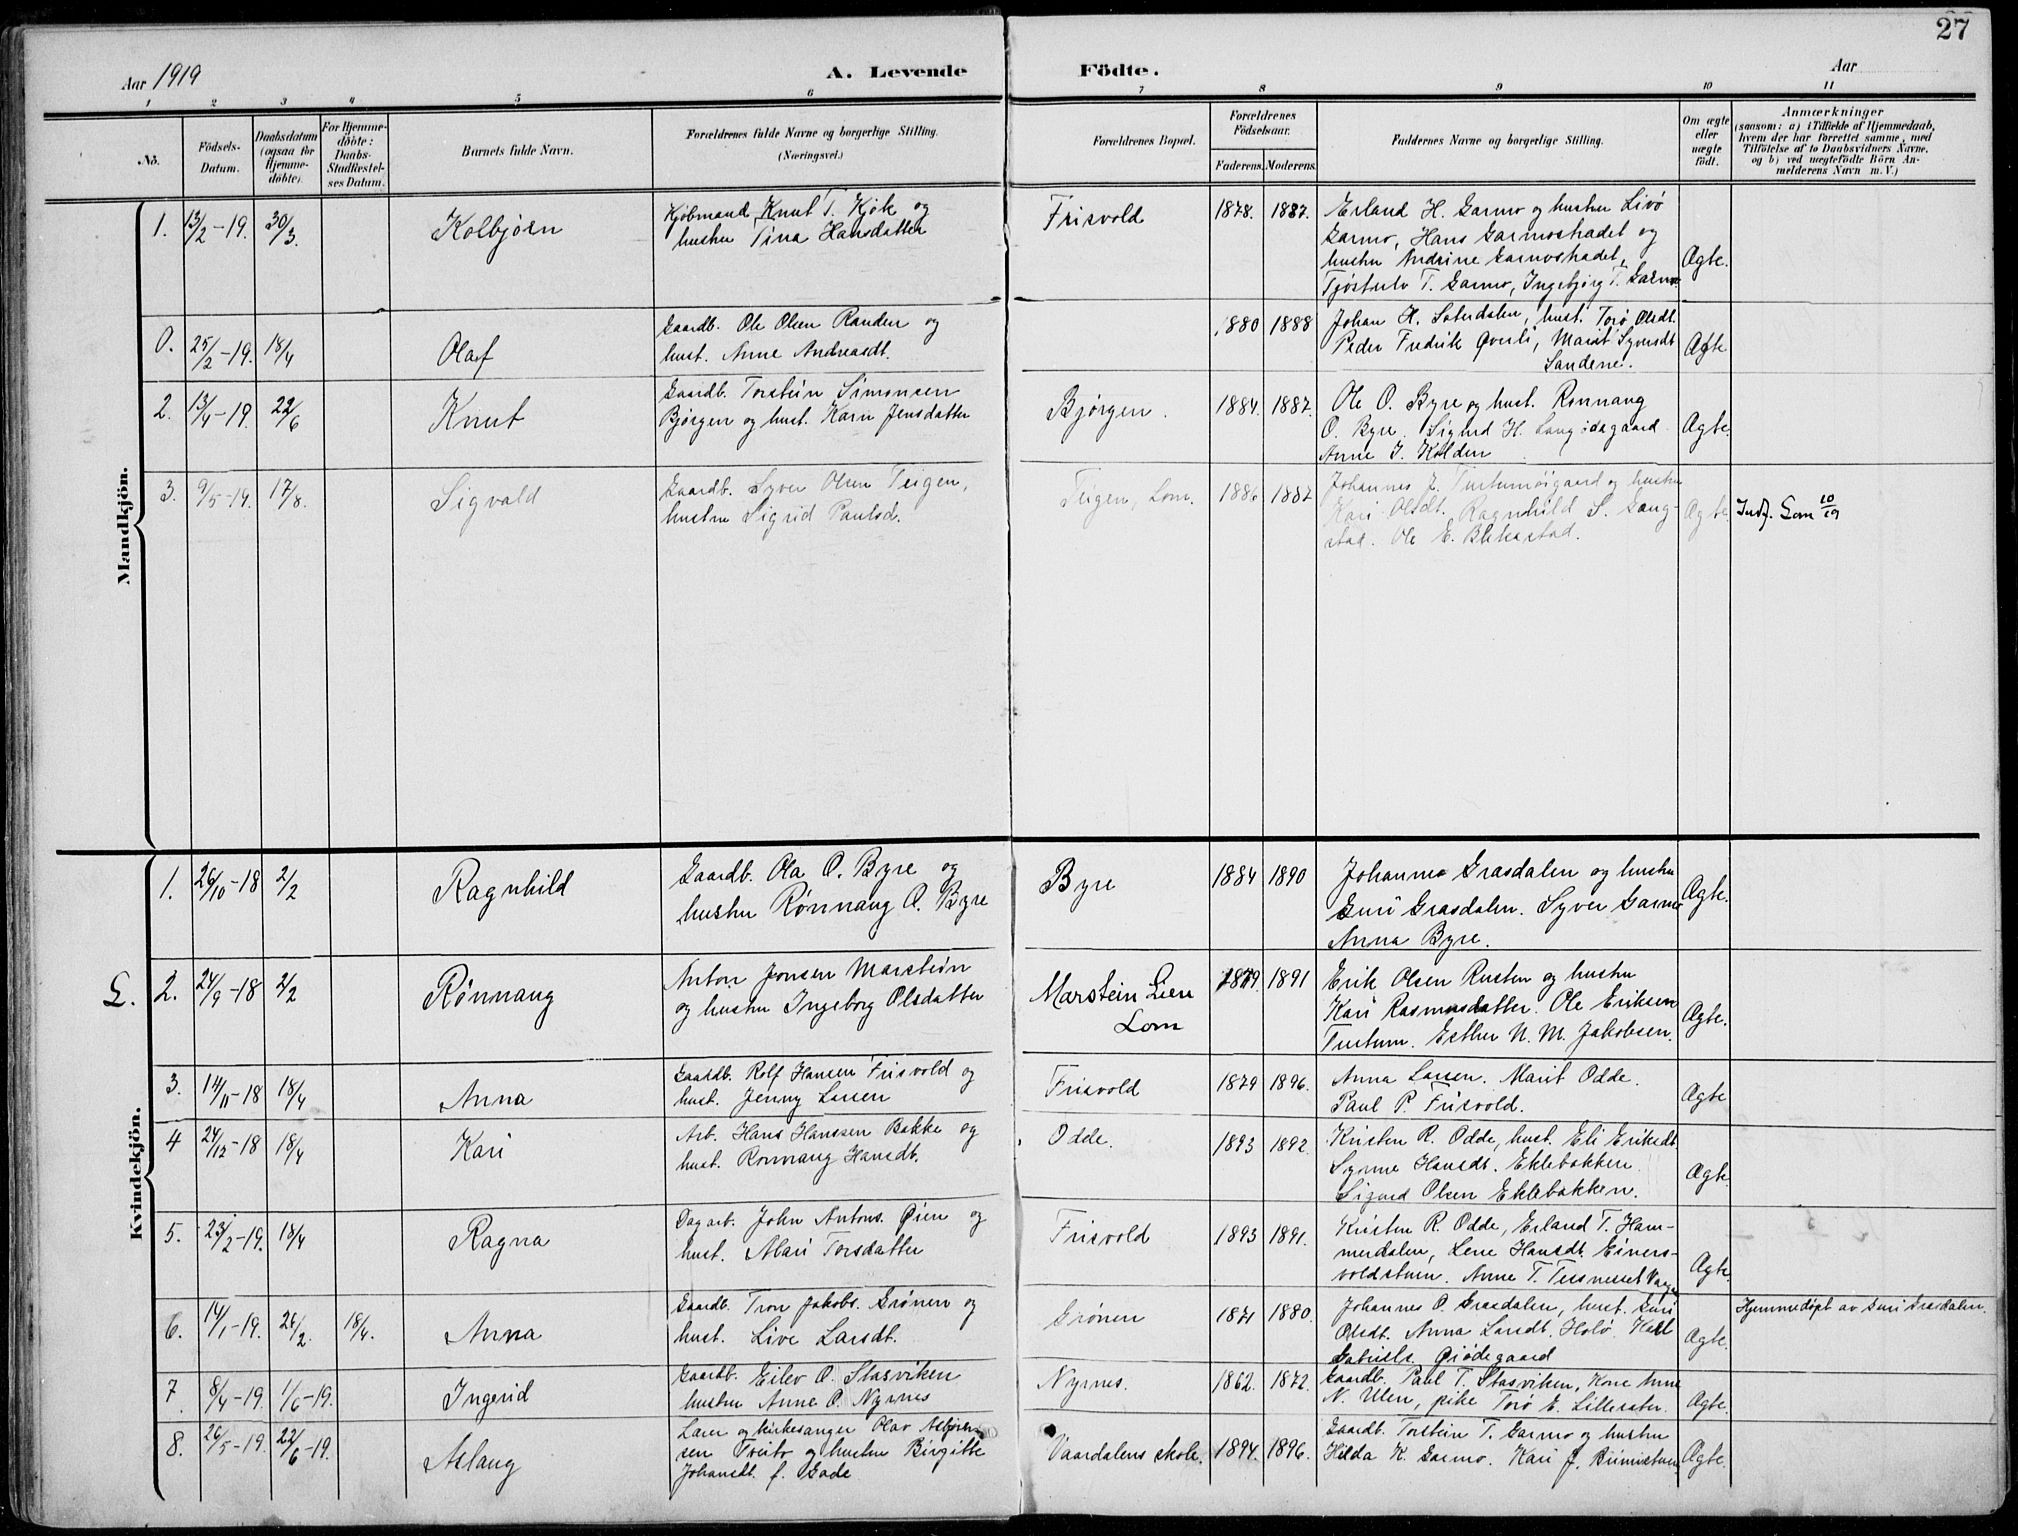 27
Aar 1919
A. Levende Födte.
Aar
1 2 3 4 5 6 7 8 9 10 11
No.
Födsels-
Datum.
Daabsdatum
(ogsaa for
Hjemme-
döbte).
For Hjemme-
döbte:
Daabs-
Stadfæstel-
ses Datum.
Barnets fulde Navn.
Forældrenes fulde Navne og borgerlige Stilling.
(Næringsvei.)
Forældrenes Bopæl.
Forældrenes
Födselsaar.
Faderens. Moderens.
Faddernes Navne og borgerlige Stilling.
Om ægte
eller
uægte
födt.
Anmærkninger
(saasom: a) i Tilfælde af Hjemmedaab,
hvem der har forrettet samme, med
Tilföielse af to Daabsvidners Navne,
og b) ved uægtefödte Börn An-
melderens Navn m. V.)
Mandkjön.
1. 13/2-19. 30/3. Kolbjörn
Kjöbmand Knut T. Kjök og
hustru Tina Hansdatter
Frisvold 1878. 1887.
Erland H. Garmo og hustru Livö
Garmo, Hans Garmostradet og
hustru Andrine Garmostradet,
Tjöstulv T. Garmo, Ingebjörg T. Garmo
Ægte.
0. 25/2-19. 18/4 Olaf
Gaardb. Ole Olsen Randen og
hust. Anne Andreasdt.
1880 1888
Johan H. Sæterdalen, hust. Torö Olsdt.
Peder Fredrik Øverli, Marit Syversdt
Sandene.
Ægte
2. 13/4-19. 22/6 Knut
Gaardb. Torstein Simonsen
Björgen og hust. Karn Jensdatter
Björgen. 1884. 1887.
Ole O. Byre og hust. Rönnaug
O. Byre. Sigurd H.
Anne J. Kolden
Ægte.
3. 9/5-19. 17/8. Sigvald
Gaardb. Syver Olsen Teigen,
hustru Sigrid Paulsd.
Teigen, Lom. 1886 1887
Johannes J. Turtumöigaard og hustru
Kari Olsdt. Ragnhild S. Gaug-
stad. Ole E. Blekastad.
Ægte. Indf. Lom 10/19
Kvindekjön.
1. 26/10-18 2/2 Ragnhild
Gaardb. Ola O. Byre og
hustru Rönnaug O. Byre
Byre 1884 1890
Johannes Grasdalen og hustru
Guri Grasdalen. Syver Garmo
Anna Byre.
Ægte.
L. 2. 24/9-18 2/2 Rönnaug
Anton Jonsen Marstein
og hustru Ingeborg Olsdatter
Marstein Lien
Lom
1879. 1891
Erik Olsen Rusten og hustru
Kari Rasmusdatter. Ole Eriksen
Turtum. Esther N. M. Jakobsen.
Ægte.
3. 14/11-18 18/4 Anna
Gaardb. Rolf Hansen Frisvold og
hust. Jenny Larsen
Frisvold 1879 1896.
Anna Larsen. Marit Odde.
Paul P. Frisvold.
Ægte
4 24/12-18 18/4 Kari
Arb. Hans Hanssen Bakke og
hust. Rönnaug Hansdt.
Odde. 1893 1892.
Kristen R. Odde, hust. Eli Eriksdt
Synne Hansdt. Eklebakken.
Sigurd Olsen Eklebakken.
Ægte.
5. 23/2-19. 18/4 Ragna
Dagarb. John Antons. Øien og
hust. Mari Torsdatter
Frisvold 1893 1891.
Kristen R. Odde, Erland T. Ham-
merdalen, Lene Hansdt. Einers-
voldstuen. Anne T. Tesneset Vaage
Ægte.
6. 14/1-19. 26/2. 18/4. Anna
Gaardb. Tron Jakobs. Grönen og
hust. Live Larsdt.
Grönen 1871 1880.
Johannes O. Grasdalen, hust. Guri
Olsdt. Anna Larsdt. Holö. Karl
Gabriels. Øiödegaard
Ægte. Hjemmedöpt av Guri Grasdalen.
7. 8/4-19. 1/6-19. Ingerid
Gaardb. Eilev O. Stasviken
hustru Anne O. Nyrnes
Nyrnes. 1862. 1872.
Gaardb. Paul T. Stasviken, Kone Anne
N. Ulen, pike Torö E. Lillesæter.
Ægte.
8. 26/5-19. 22/6-19. Aslaug
Lærer og kirkesanger Olav Asbjörn-
sen Tveito og hustru Birgitte
Johansdt. f. Gade
Vaardalens skole. 1894. 1896.
Gaardb. Torstein T. Garmo og hustru
Hilda K. Garmo. Kari J. Brimistuen.
Ægte.